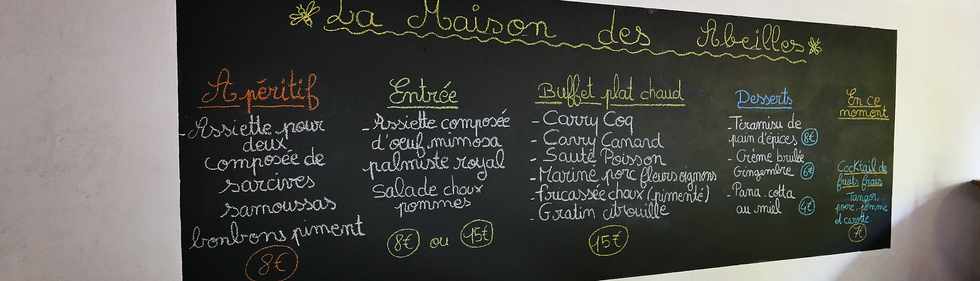 La Maison des Abeilles
Apéritif
- Assiette pour
deux
composée de
sarcives
samoussas
bonbons piment
8€
Entrée
- Assiette composée
d'oeuf mimosa
palmiste royal
Salade choux
pommes
8€ ou 15€
Buffet plat chaud
- Carry Coq
- Carry Canard
- Sauté Poisson
- Mariné porc fleurs oignons
- Fricassée choux (pimenté)
- Gratin citrouille
15€
Desserts
- Tiramisu de
pain d'épices 8€
- Crème brulée
Gingembre 6€
- Pana cotta
au miel 4€
En ce
moment
Cocktail de
fruits frais
Tangor,
poire, pomme
et carotte
7€